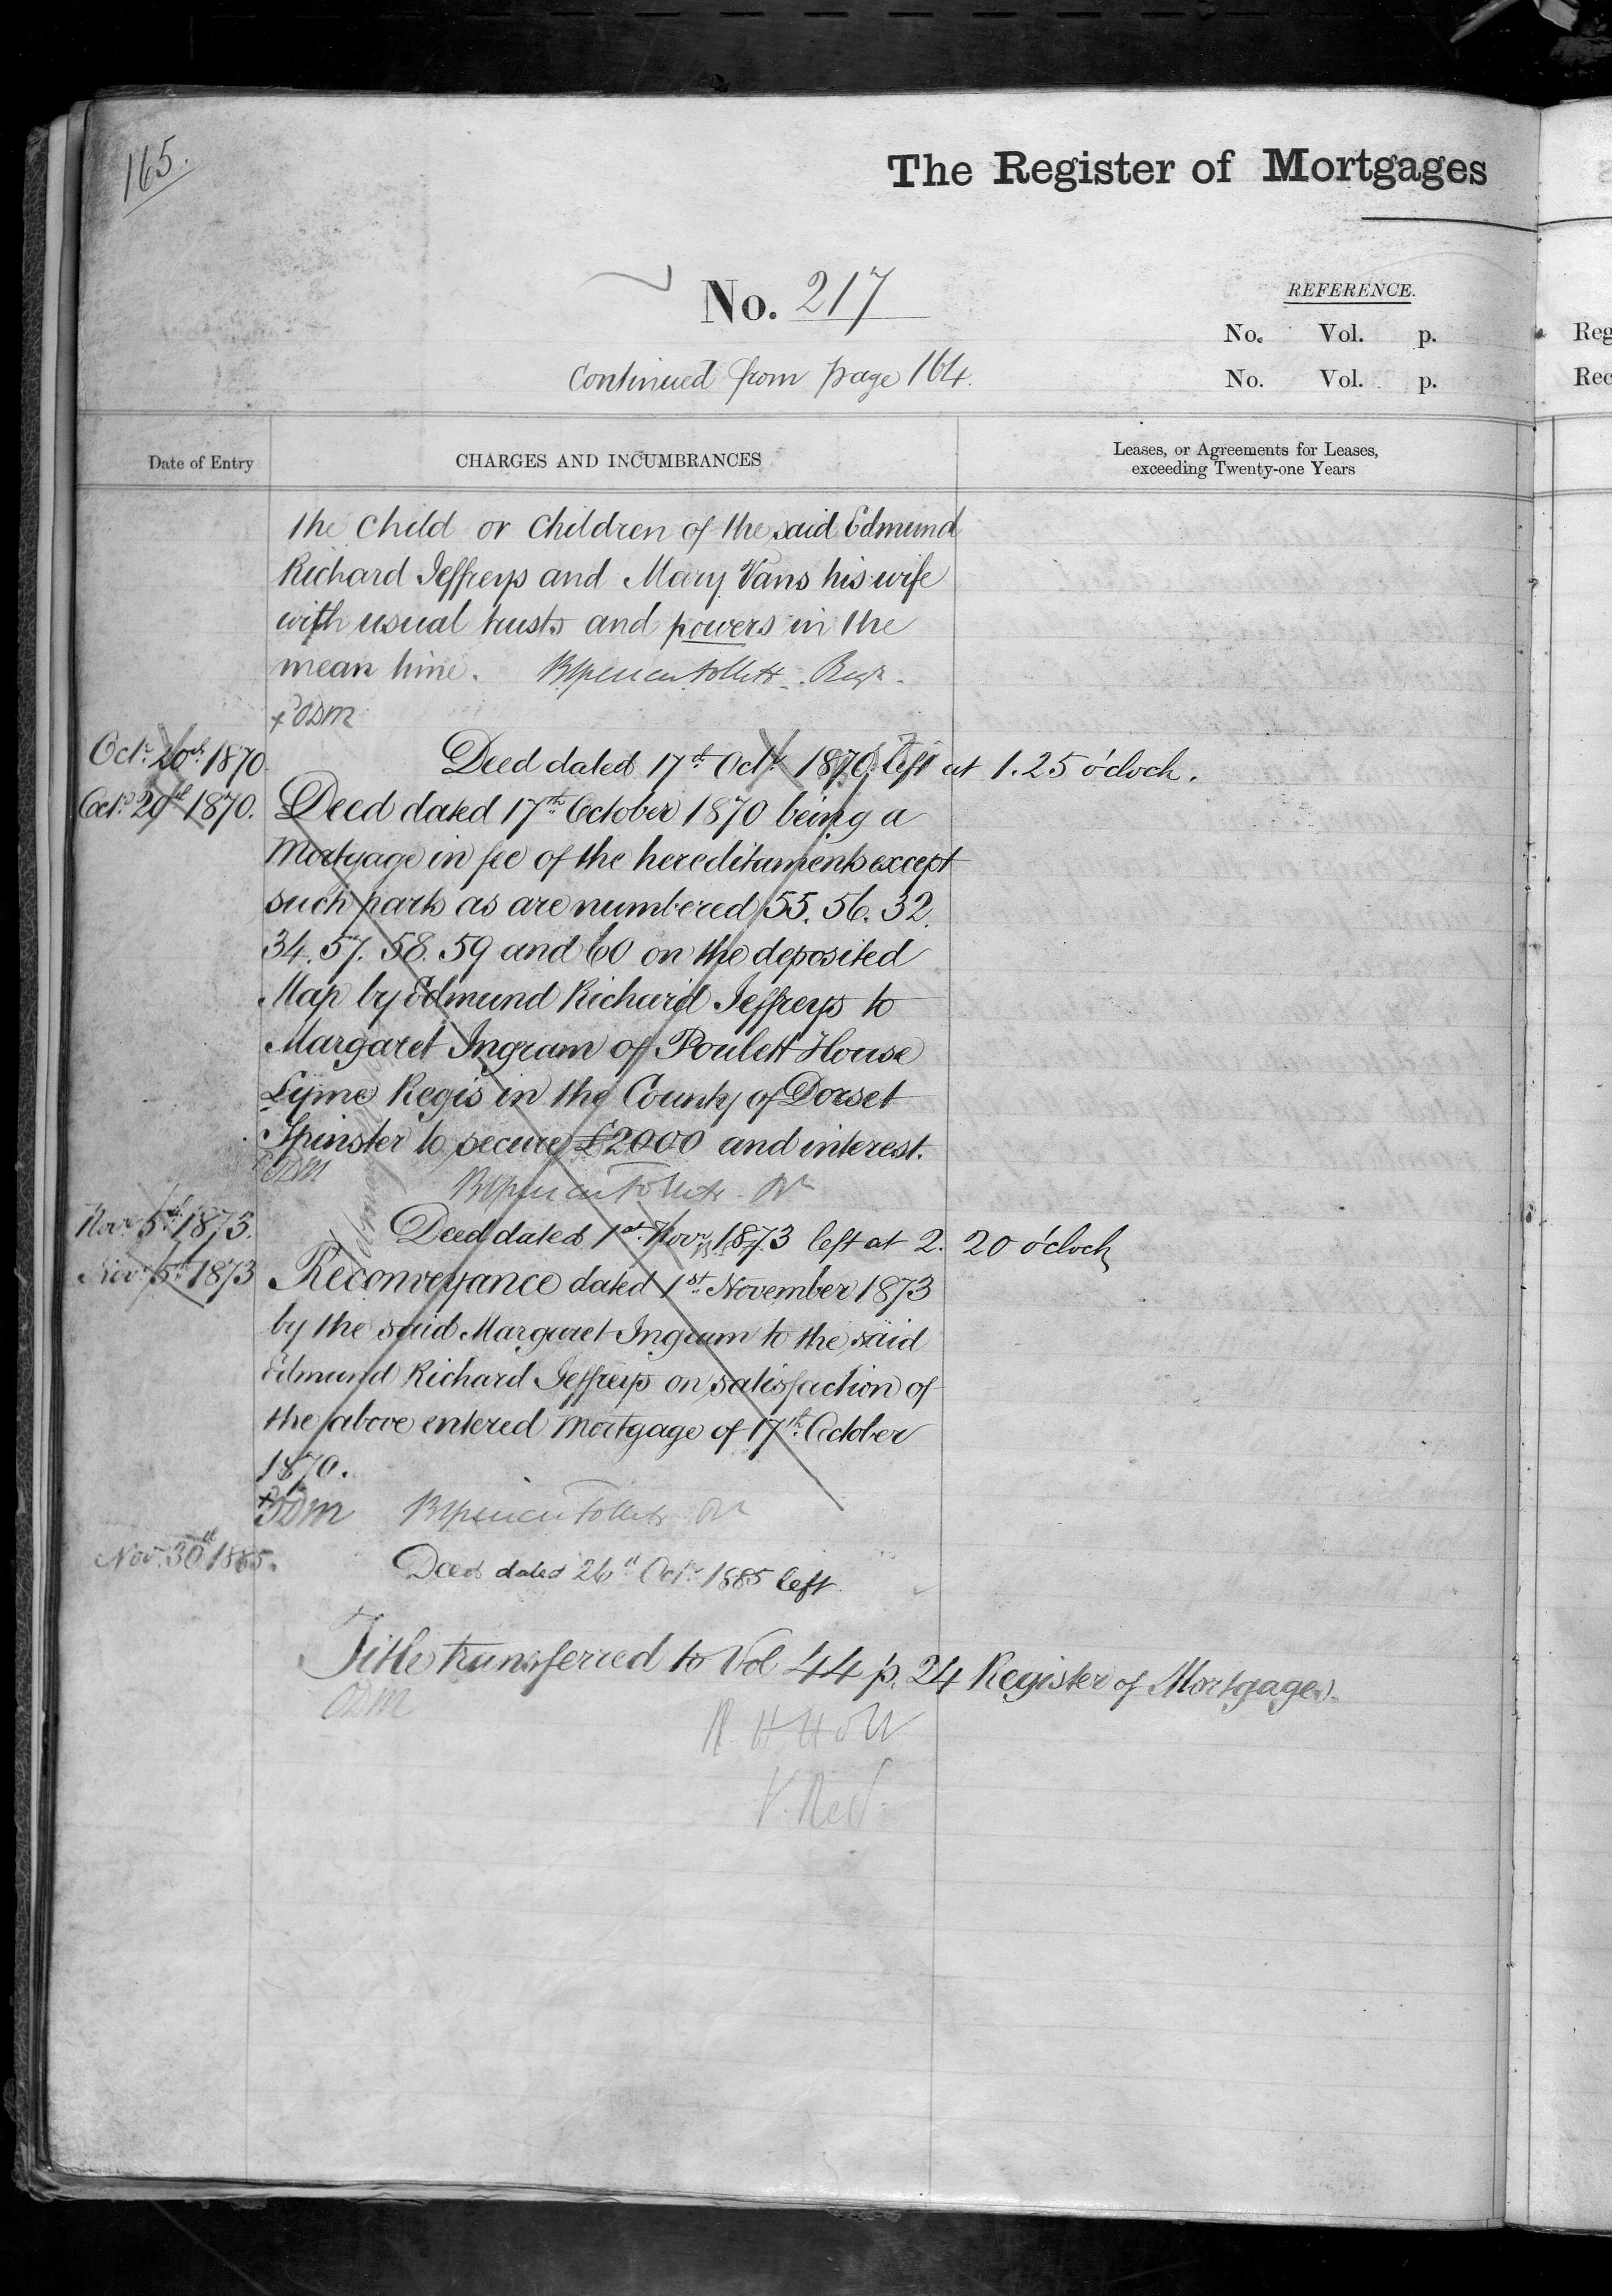 165.
The Register of Mortgages
No. 217
REFERENCE.
No. Vol. p.
No. Vol. p.
Continued from page 164.
Reg
Rec
Date of Entry
CHARGES AND INCUMBRANCES
Leases, or Agreements for Leases,
exceeding Twenty-one Years
the Child or Children of the said Edmund
Richard Jeffreys and Mary Vans his wife
with usual trusts and powers in the
mean time.
ODM
Octr. 20th 1870. Deed dated 17th Octr. 1870, left at 1.25 o'clock.
Octr. 20th 1870. Deed dated 17th October 1870 being a
Mortgage in fee of the hereditaments except
such parts as are numbered 55. 56. 32.
34. 57. 58. 59 and 60 on the deposited
Map by Edmund Richard Jeffreys to
Margaret Ingram of Poulett House
Lyme Regis in the County of Dorset
Spinster to secure £2000 and interest.
ODM
Novr. 5th 1873. Deed dated 1st Novr. 1873 left at 2.20 o'clock
Novr. 5th 1873 Reconveyance dated 1st November 1873
by the said Margaret Ingram to the said
Edmund Richard Jeffreys on satisfaction of
the above entered Mortgage of 17th October
1870.
ODM
Nov. 30th 1885. Deed dated 26th Octr. 1885 left
Title transferred to Vol 44 p. 24 Register of Mortgages.
ODM